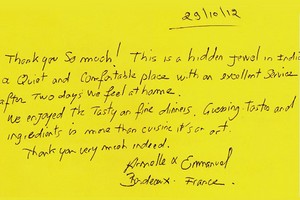 29/10/12
Thank you so much! This is a hidden jewel in Indi
a Quiet and Comfortable place with an excellent service
after Two days we feel at home.
we enjoyed The Tasty an fine dinners. Guessing tastes and
ingredients is more than cuisine it's an art.
Thank you very much indeed.
Armelle & Emmanuel
Bordeaux. France.